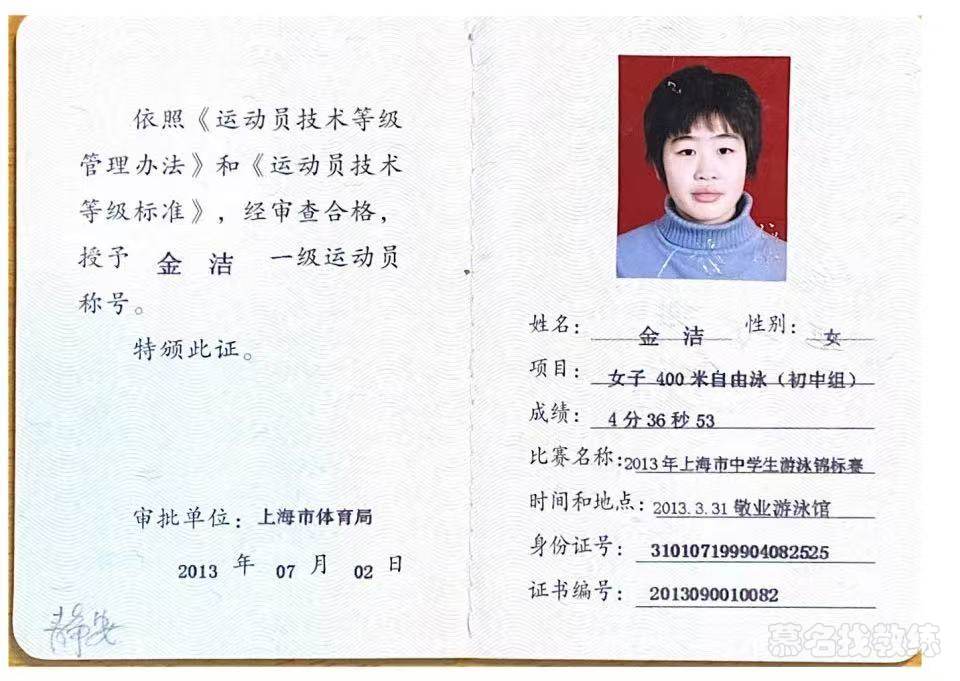 依照《运动员技术等级
管理办法》和《运动员技术
等级标准》，经审查合格，
授予 金 洁 一级运动员
称号。
特颁此证。
审批单位：上海市体育局
2013 年 07 月 02 日
静安
姓名： 金 洁 性别： 女
项目： 女子 400 米自由泳（初中组）
成绩： 4 分 36 秒 53
比赛名称：2013 年上海市中学生游泳锦标赛
时间和地点：2013.3.31 敬业游泳馆
身份证号： 310107199904082525
证书编号： 2013090010082
慕名找教练